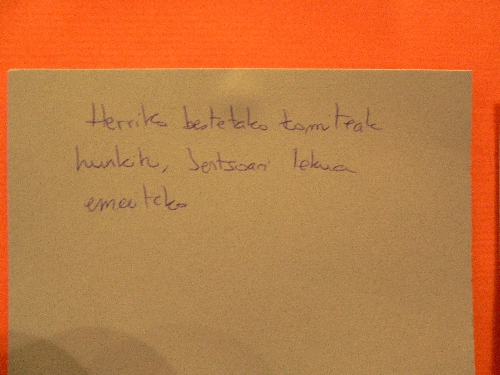 Herriko bestetako komiteak
hunkitu, bertsoari lekua
emaiteko